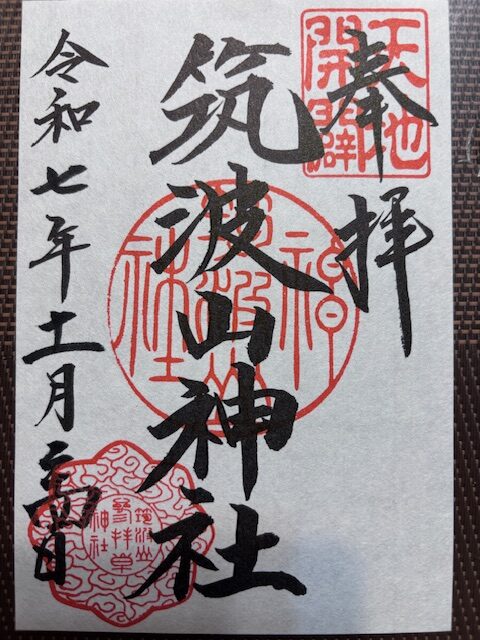 奉拝
天地
開闢
筑波山神社
筑波山
神社
令和七年十一月二十四日
筑波山
参拝章
神社